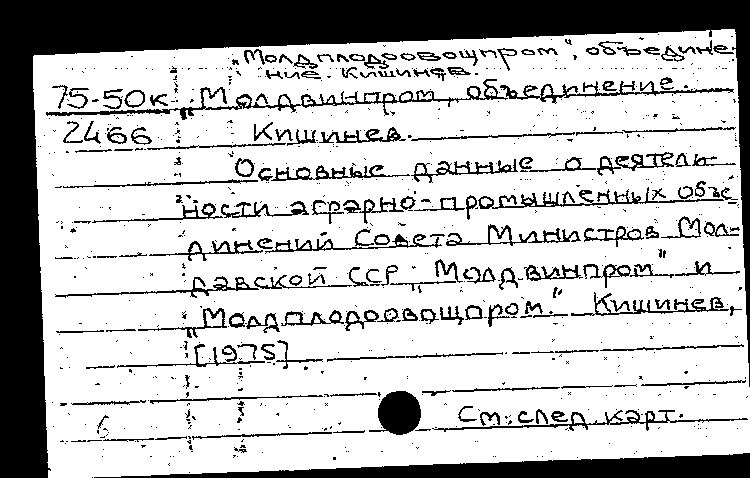 „Молдплодоовощпром", объедине-
ние. Кишинев.
75-50к „Молдвинпром, объединение.
2466 Кишинев.
Основные данные о деятель-
ности аграрно-промышленных объе
динений Совета Министров Мол-
давской ССР „Молдвинпром" и
„Молдплодоовощпром." Кишинев,
[1975]
6 См. след. карт.